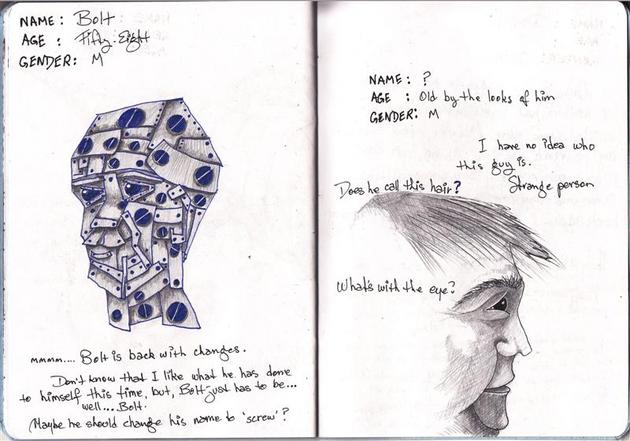 NAME: Bolt
AGE : Fifty-Eight
GENDER: M
mmmm.... Bolt is back with changes.
Don't know that I like what he has done
to himself this time, but, Bolt just has to be...
well.... Bolt.
Maybe he should change his name to 'screw'?
NAME: ?
AGE : Old by the looks of him
GENDER: M
I have no idea who
this guy is.
Strange person
Does he call this hair?
What's with the eye?